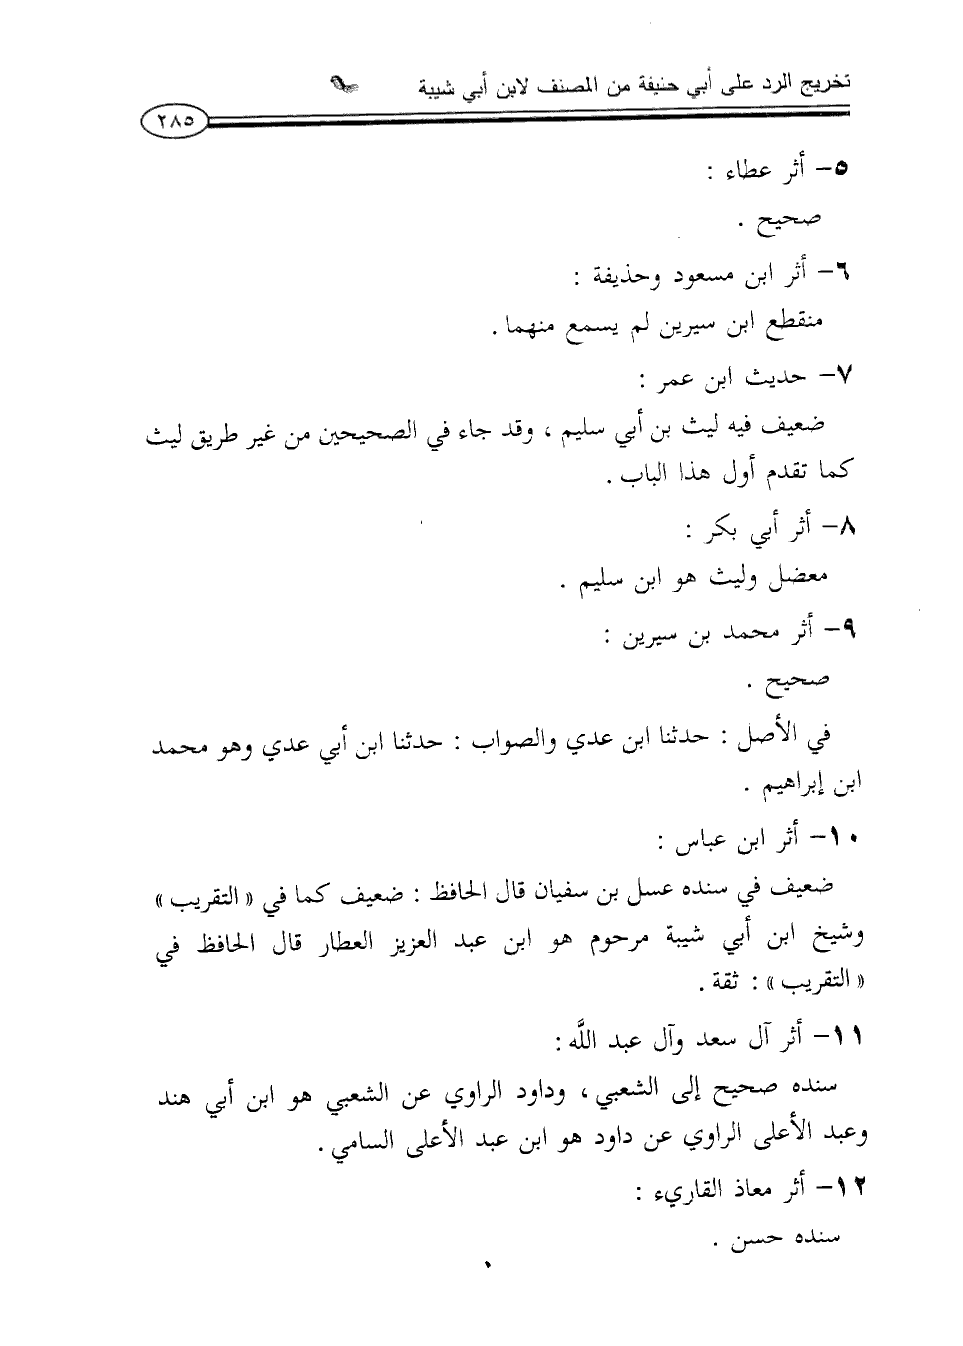 تخريج الرد على أبي حنيفة من المصنف لابن أبي شيبة
٢٨٥
٥- أثر عطاء :
صحيح .
٦- أثر ابن مسعود وحذيفة :
منقطع ابن سيرين لم يسمع منهما .
٧- حديث ابن عمر :
ضعيف فيه ليث بن أبي سليم ، وقد جاء في الصحيحين من غير طريق ليث
كما تقدم أول هذا الباب .
٨- أثر أبي بكر :
معضل وليث هو ابن سليم .
٩- أثر محمد بن سيرين :
صحيح .
في الأصل : حدثنا ابن عدي والصواب : حدثنا ابن أبي عدي وهو محمد
ابن إبراهيم .
١٠- أثر ابن عباس :
ضعيف في سنده عسل بن سفيان قال الحافظ : ضعيف كما في « التقريب »
وشيخ ابن أبي شيبة مرحوم هو ابن عبد العزيز العطار قال الحافظ في
« التقريب » : ثقة .
١١- أثر آل سعد وآل عبد اللَّه :
سنده صحيح إلى الشعبي ، وداود الراوي عن الشعبي هو ابن أبي هند
وعبد الأعلى الراوي عن داود هو ابن عبد الأعلى السامي .
١٢- أثر معاذ القاريء :
سنده حسن .